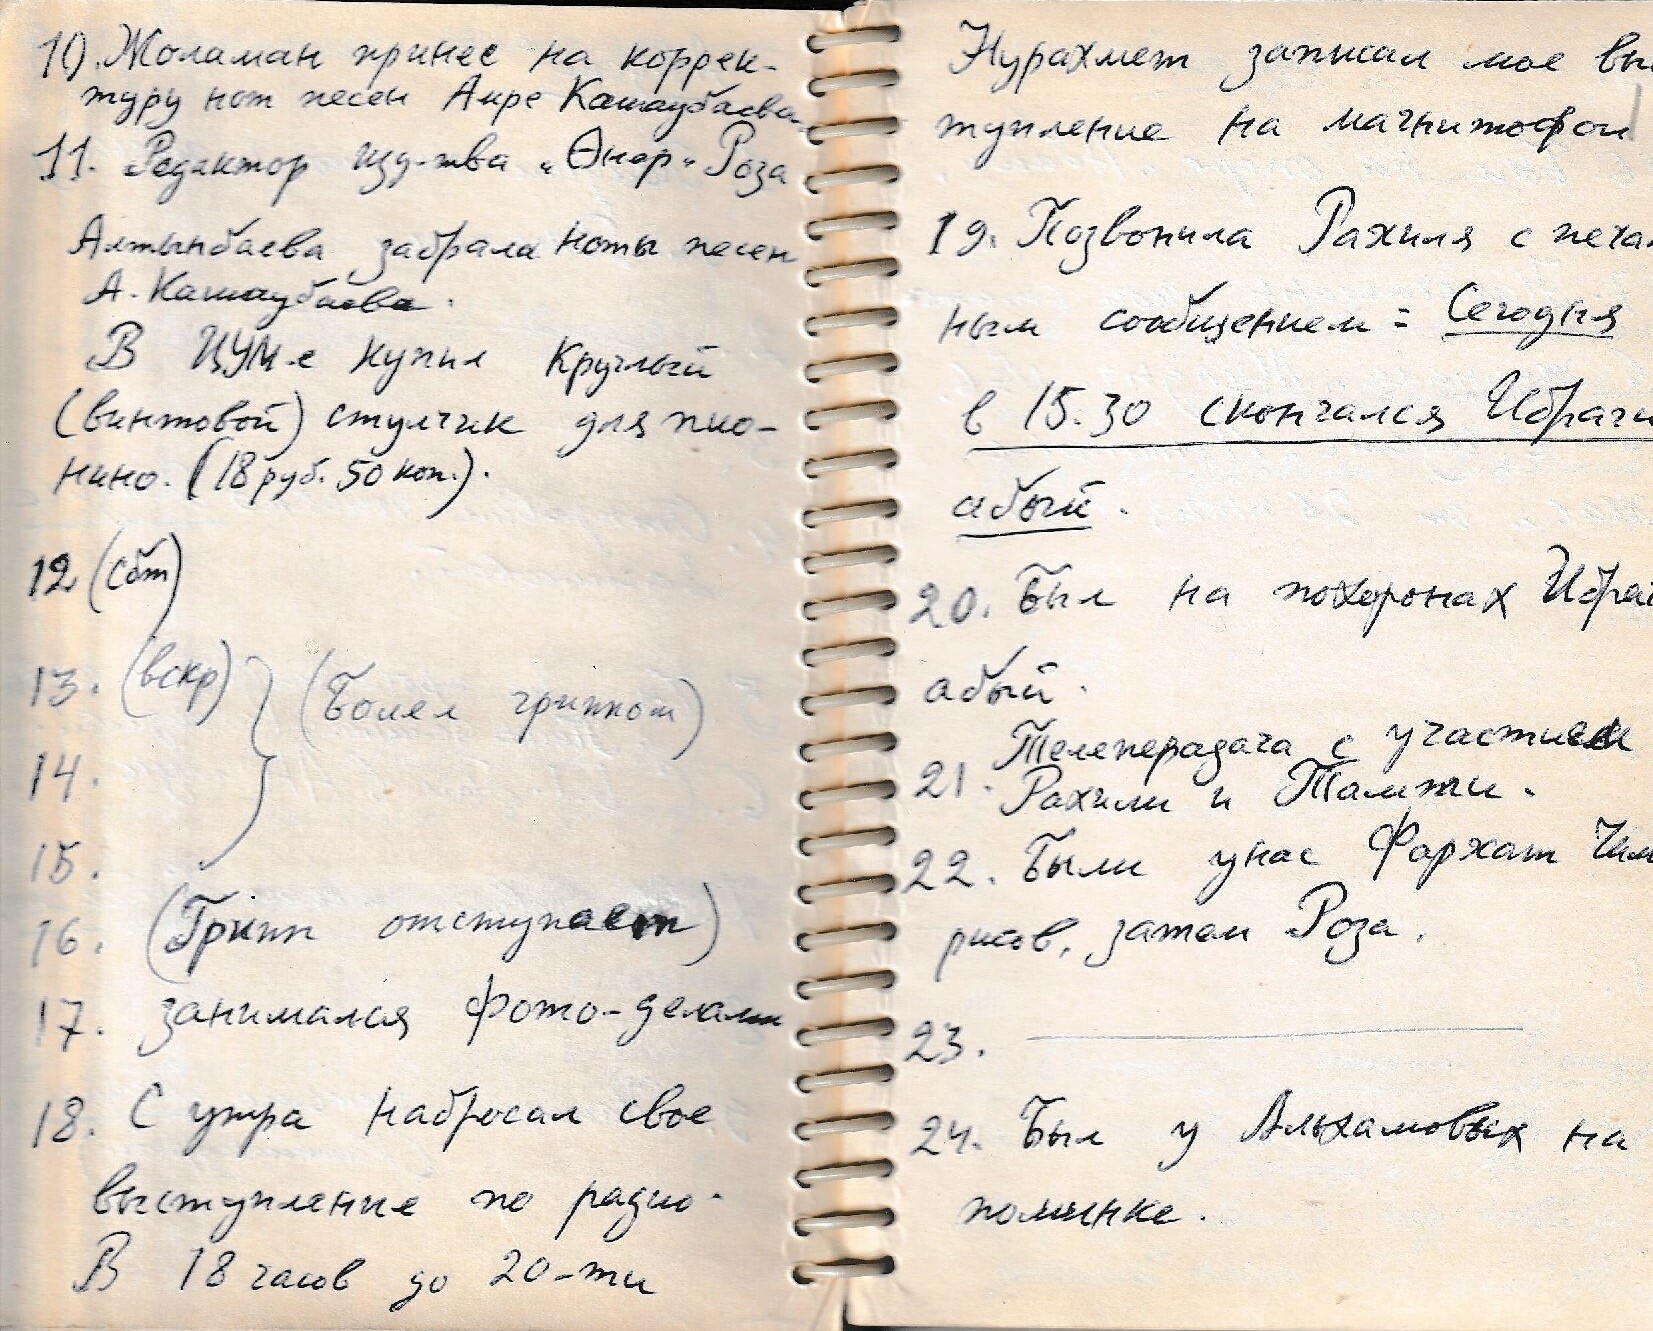 10. Жоламан принес на коррек-
туру нот песен Амре Кашаубаева.
11. Редактор изд-тва „Өнер" Роза
Алтынбаева забрала ноты песен
А. Кашаубаева.
В ЦУМ-е купил круглый
(винтовой) стулчик для пио-
нино. (18 руб. 50 коп.).
12 (сбт)
13. (вскр) (Болел гриппом)
14.
15.
16. (Грипп отступает)
17. занимался фото-делами
18. С утра набросал свое
выступление по радио.
В 18 часов до 20-ти
Нурахмет записал мое вы
тупление на магнитофон
19. Позвонила Рахиля с печал
ным сообщением = Сегодня
в 15.30 скончался Ибраги
абый.
20. Был на похоронах Ибраг
абый.
Телепередача с участием
21. Рахили и Тамти.
22. Были у нас Фархат
рисов, затем Роза.
23.
24. Был у Альхамовых на
поминке.